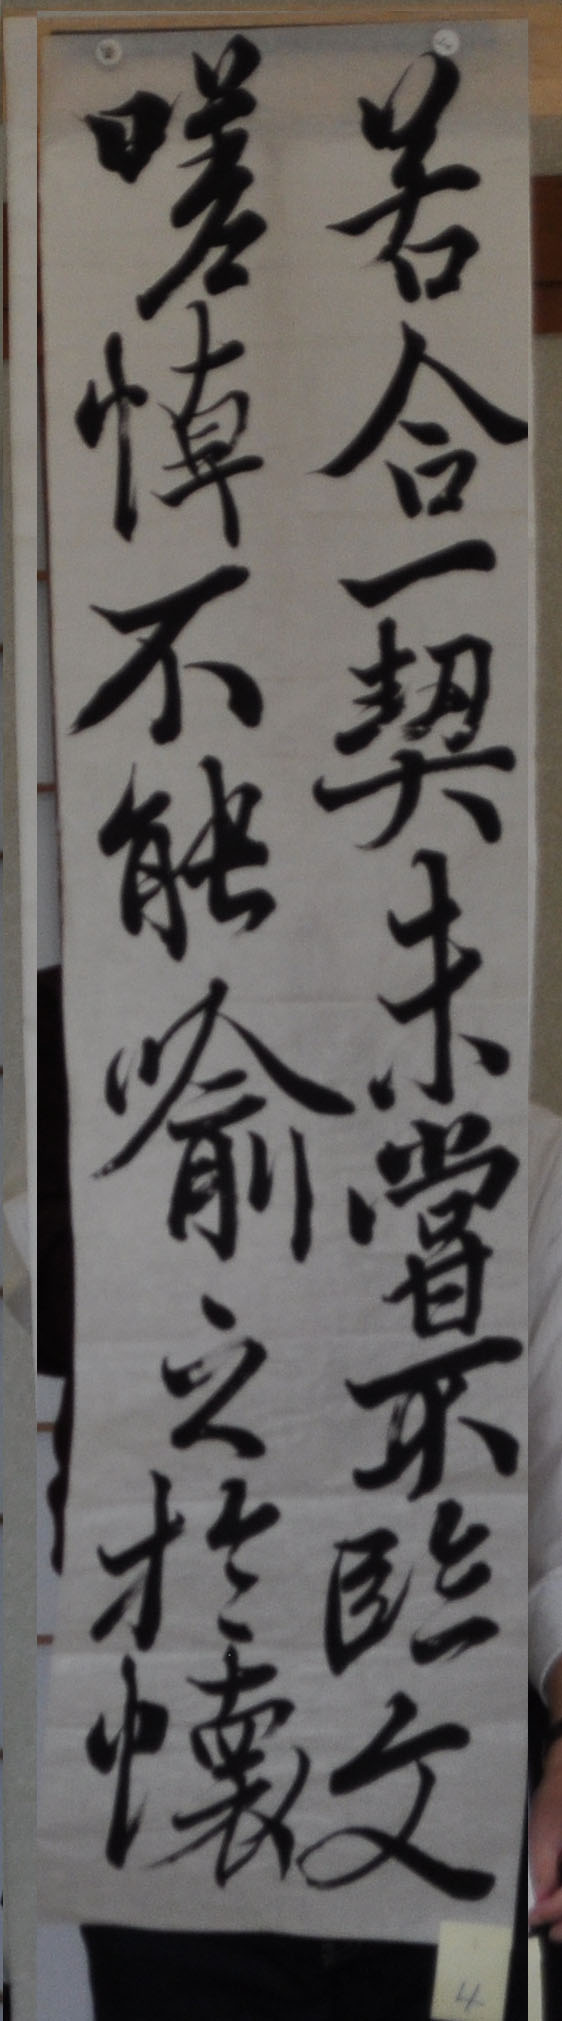 若合一契未嘗不臨文
嗟悼不能喻之於懷
4